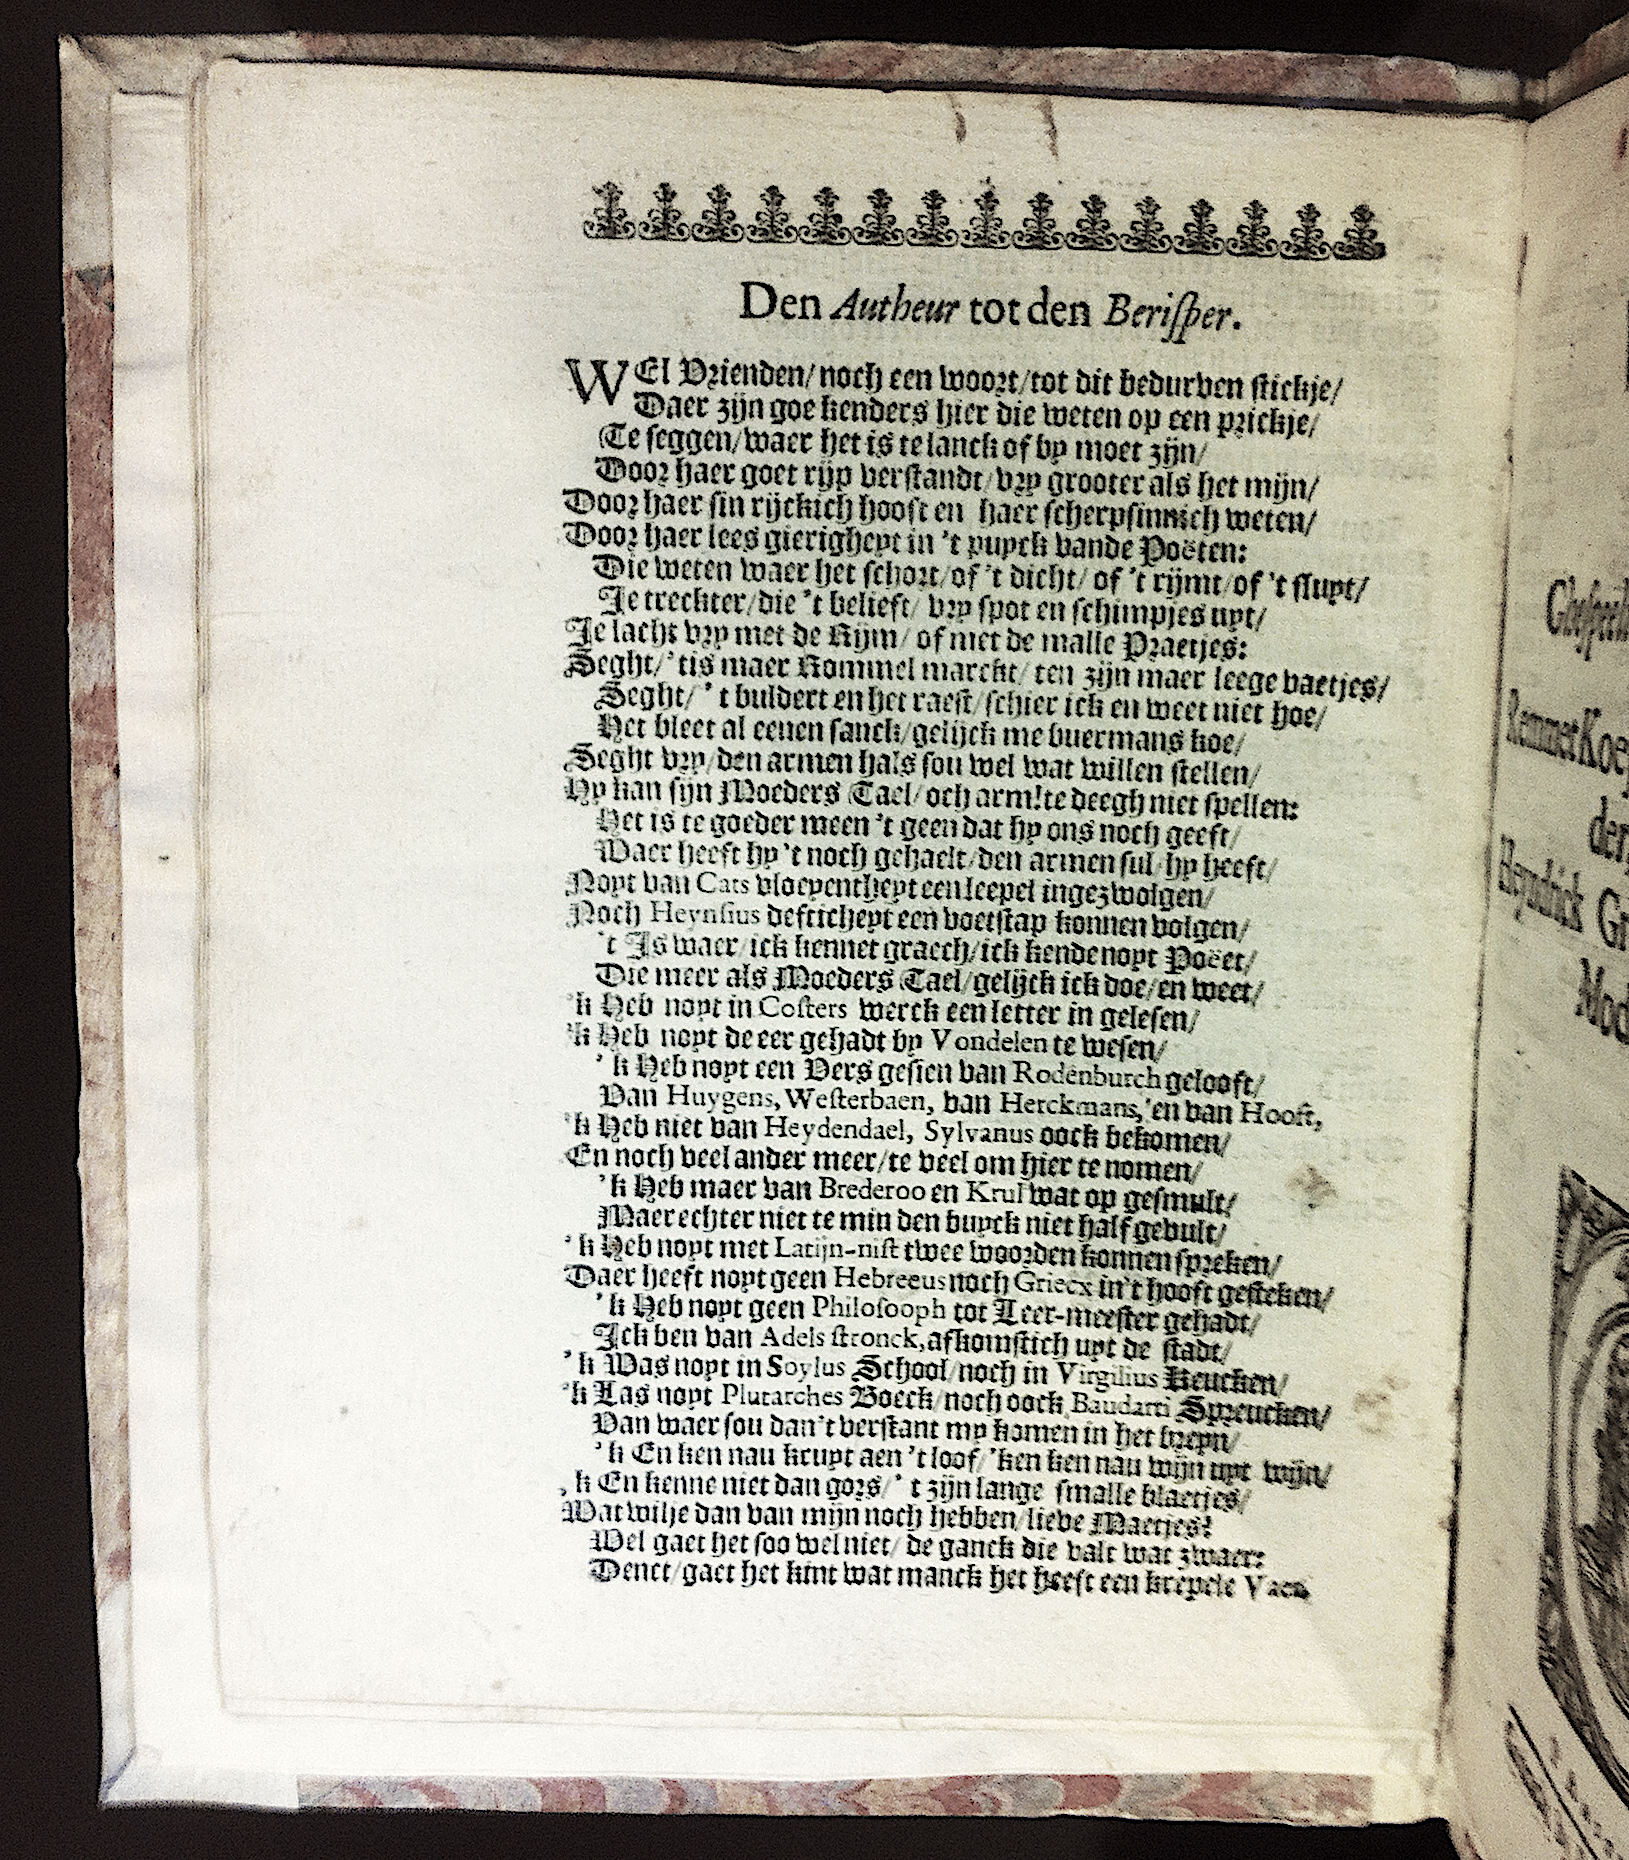 Den Autheur tot den Beriſper.
WEl Vrienden/ noch een woort/ tot dit bedurven ſtickje/
Daer zijn goe kenders hier die weten op een prickje/
Te ſeggen/ waer het is te lanck of by moet zijn/
Door haer goet rijp verſtandt/ vry grooter als het mijn/
Door haer ſin rijckich hooft en haer ſcherpſinnich weten/
Door haer lees gierigheyt in 't puyck vande Poëten:
Die weten waer het ſchort/ of 't dicht/ of 't rijmt/ of 't ſluyt/
Je treckter/ die 't belieft/ vry ſpot en ſchimpjes uyt/
Je lacht vry met de Rijm/ of met de malle Praetjes:
Seght/ 'tis maer Rommel marckt/ ten zijn maer leege vaetjes/
Seght/ 't buldert en het raeſt/ ſchier ick en weet niet hoe/
Het bleet al eenen ſanck/ gelijck me buermans koe/
Seght vry/ den armen hals ſou wel wat willen ſtellen/
Hy kan ſijn Moeders Tael/ och arm! te deegh niet ſpellen:
Het is te goeder meen 't geen dat hy ons noch geeft/
Waer heeft hy 't noch gehaelt/ den armen ſul hy heeft/
Noyt van Cats vloeyentheyt een leepel ingezwolgen/
Noch Heynſius deftichept een voetſtap konnen volgen/
't Is waer/ ick kennet graech/ ick kende noyt Poëet/
Die meer als Moeders Tael/ gelijck ick doe/ en weet/
'k Heb noyt in Coſters werck een letter in geleſen/
'k Heb noyt de eer gehadt by Vondelen te weſen/
'k Heb noyt een Vers geſien van Rodenburch gelooft/
Van Huygens, Weſterbaen, van Herckmans, en van Hooft,
'k Heb niet van Heydendael, Sylvanus oock bekomen/
En noch veel ander meer/ te veel om hier te nomen/
'k Heb maer van Brederoo en Krul wat op geſmult/
Maer echter niet te min den buyck niet half gevult/
'k Heb noyt met Latijn-niſt twee woorden konnen ſpreken/
Daer heeft noyt geen Hebreeus noch Griecx in't hooft geſteken/
'k Heb noyt geen Philoſooph tot Leer-meeſter gehadt/
Ick ben van Adels ſtronck, afkomſtich uyt de ſtadt/
'k Was noyt in Soylus School/ noch in Virgilius Keucken/
'k Las noyt Plutarches Boeck/ noch oock Baudarti Spreucken/
Van waer ſou dan 't verſtant my komen in het breyn/
'k En ken nau kruyt aen 't loof/ 'ken ken nau wijn uyt wijn/
'k En kenne niet dan gors/ 't zijn lange ſmalle blaetjes/
Wat wilje dan van mijn noch hebben/ lieve Maetjes?
Wel gaet het ſoo wel niet/ de ganck die valt wat zwaer:
Denct/ gaet het kint wat manck het heeft een krepele Vaer.